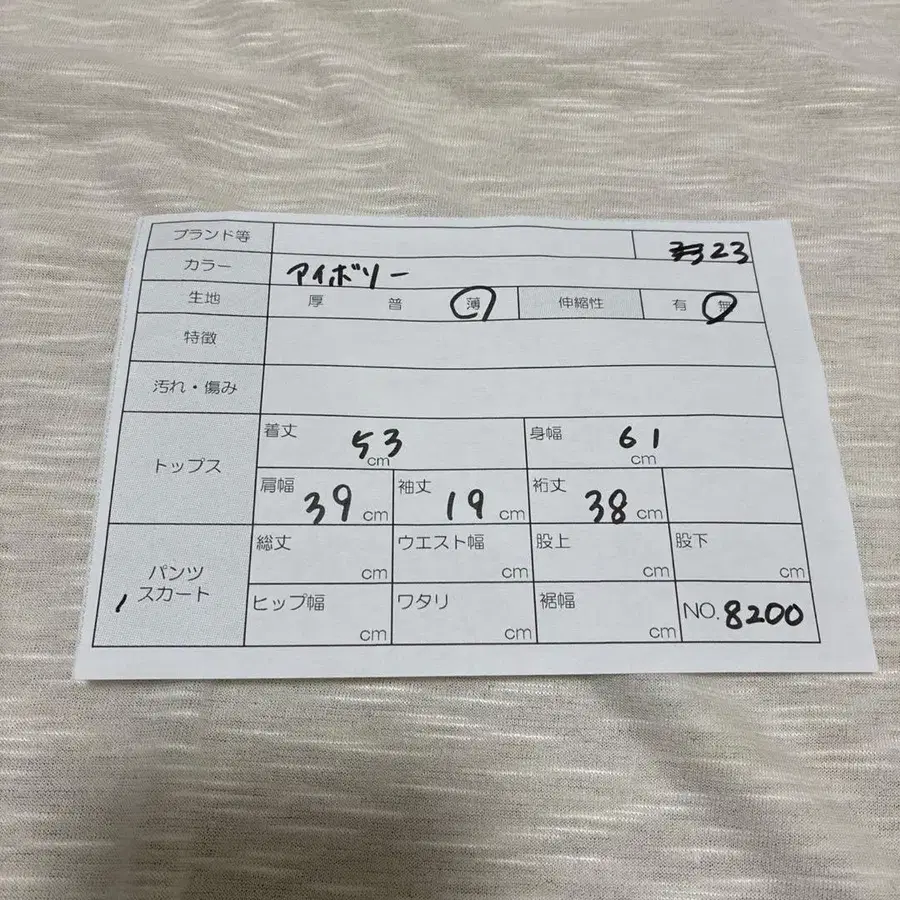 ブランド等 23
カラー アイボリー
生地 厚 普 薄 伸縮性 有 無
特徴
汚れ・傷み
トップス 着丈 53 cm 身幅 61 cm
肩幅 39 cm 袖丈 19 cm 裄丈 38 cm
パンツ スカート 総丈 cm ウエスト幅 cm 股上 cm 股下 cm
ヒップ幅 cm ワタリ cm 裾幅 cm NO. 8200